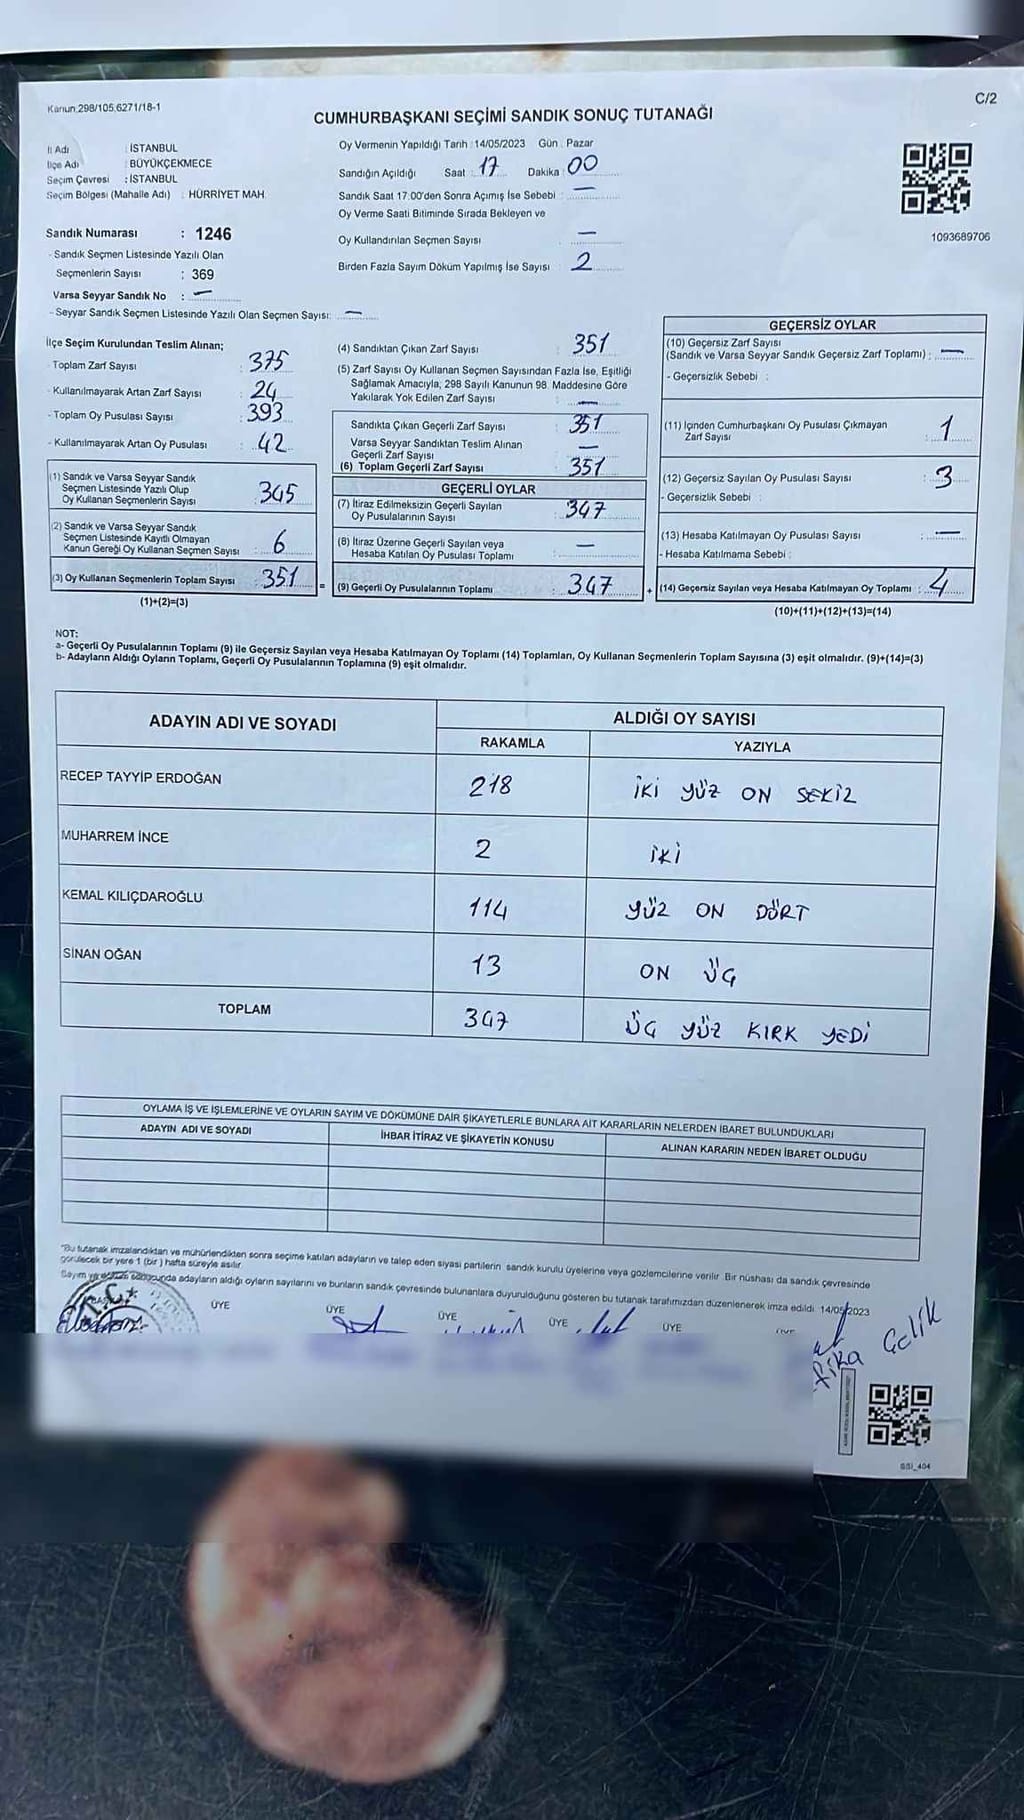 Kanun:298/105,6271/18-1
C/2
CUMHURBAŞKANI SEÇİMİ SANDIK SONUÇ TUTANAĞI
İl Adı : İSTANBUL
İlçe Adı : BÜYÜKÇEKMECE
Seçim Çevresi : İSTANBUL
Seçim Bölgesi (Mahalle Adı) : HÜRRİYET MAH.
Sandık Numarası : 1246
- Sandık Seçmen Listesinde Yazılı Olan
Seçmenlerin Sayısı : 369
Varsa Seyyar Sandık No : —
- Seyyar Sandık Seçmen Listesinde Yazılı Olan Seçmen Sayısı: —
Oy Vermenin Yapıldığı Tarih : 14/05/2023 Gün : Pazar
Sandığın Açıldığı Saat 17 Dakika : 00
Sandık Saat 17:00'den Sonra Açımış İse Sebebi : —
Oy Verme Saati Bitiminde Sırada Bekleyen ve
Oy Kullandırılan Seçmen Sayısı —
Birden Fazla Sayım Döküm Yapılmış İse Sayısı : 2
1093689706
İlçe Seçim Kurulundan Teslim Alınan;
- Toplam Zarf Sayısı : 375
- Kullanılmayarak Artan Zarf Sayısı : 24
- Toplam Oy Pusulası Sayısı : 393
- Kullanılmayarak Artan Oy Pusulası : 42
(1) Sandık ve Varsa Seyyar Sandık
Seçmen Listesinde Yazılı Olup
Oy Kullanan Seçmenlerin Sayısı : 345
(2) Sandık ve Varsa Seyyar Sandık
Seçmen Listesinde Kayıtlı Olmayan
Kanun Gereği Oy Kullanan Seçmen Sayısı : 6
(3) Oy Kullanan Seçmenlerin Toplam Sayısı : 351
(1)+(2)=(3)
(4) Sandıktan Çıkan Zarf Sayısı : 351
(5) Zarf Sayısı Oy Kullanan Seçmen Sayısından Fazla İse, Eşitliği
Sağlamak Amacıyla; 298 Sayılı Kanunun 98. Maddesine Göre
Yakılarak Yok Edilen Zarf Sayısı : —
Sandıkta Çıkan Geçerli Zarf Sayısı : 351
Varsa Seyyar Sandıktan Teslim Alınan
Geçerli Zarf Sayısı : —
(6) Toplam Geçerli Zarf Sayısı : 351
GEÇERLİ OYLAR
(7) İtiraz Edilmeksizin Geçerli Sayılan
Oy Pusulalarının Sayısı : 347
(8) İtiraz Üzerine Geçerli Sayılan veya
Hesaba Katılan Oy Pusulası Toplamı : —
= (9) Geçerli Oy Pusulalarının Toplamı : 347
GEÇERSİZ OYLAR
(10) Geçersiz Zarf Sayısı
(Sandık ve Varsa Seyyar Sandık Geçersiz Zarf Toplamı) : —
- Geçersizlik Sebebi :
(11) İçinden Cumhurbaşkanı Oy Pusulası Çıkmayan
Zarf Sayısı : 1
(12) Geçersiz Sayılan Oy Pusulası Sayısı : 3
- Geçersizlik Sebebi :
(13) Hesaba Katılmayan Oy Pusulası Sayısı : —
- Hesaba Katılmama Sebebi :
+ (14) Geçersiz Sayılan veya Hesaba Katılmayan Oy Toplamı : 4
(10)+(11)+(12)+(13)=(14)
NOT:
a- Geçerli Oy Pusulalarının Toplamı (9) ile Geçersiz Sayılan veya Hesaba Katılmayan Oy Toplamı (14) Toplamları, Oy Kullanan Seçmenlerin Toplam Sayısına (3) eşit olmalıdır. (9)+(14)=(3)
b- Adayların Aldığı Oyların Toplamı, Geçerli Oy Pusulalarının Toplamına (9) eşit olmalıdır.
ADAYIN ADI VE SOYADI ALDIĞI OY SAYISI
RAKAMLA YAZIYLA
RECEP TAYYİP ERDOĞAN 218 İKİ YÜZ ON SEKİZ
MUHARREM İNCE 2 İKİ
KEMAL KILIÇDAROĞLU 114 YÜZ ON DÖRT
SİNAN OĞAN 13 ON ÜÇ
TOPLAM 347 ÜÇ YÜZ KIRK YEDİ
OYLAMA İŞ VE İŞLEMLERİNE VE OYLARIN SAYIM VE DÖKÜMÜNE DAİR ŞİKAYETLERLE BUNLARA AİT KARARLARIN NELERDEN İBARET BULUNDUKLARI
ADAYIN ADI VE SOYADI İHBAR İTİRAZ VE ŞİKAYETİN KONUSU ALINAN KARARIN NEDEN İBARET OLDUĞU
"Bu tutanak imzalandıktan ve mühürlendikten sonra seçime katılan adayların ve talep eden siyasi partilerin sandık kurulu üyelerine veya gözlemcilerine verilir. Bir nüshası da sandık çevresinde
görülecek bir yere 1 (bir) hafta süreyle asılır.
Sayım ve döküm sonucunda adayların aldığı oyların sayılarını ve bunların sandık çevresinde bulunanlara duyurulduğunu gösteren bu tutanak tarafımızdan düzenlenerek imza edildi. 14/05/2023
T.C.
ÜYE ÜYE ÜYE ÜYE ÜYE
Çelik
SSİ_404